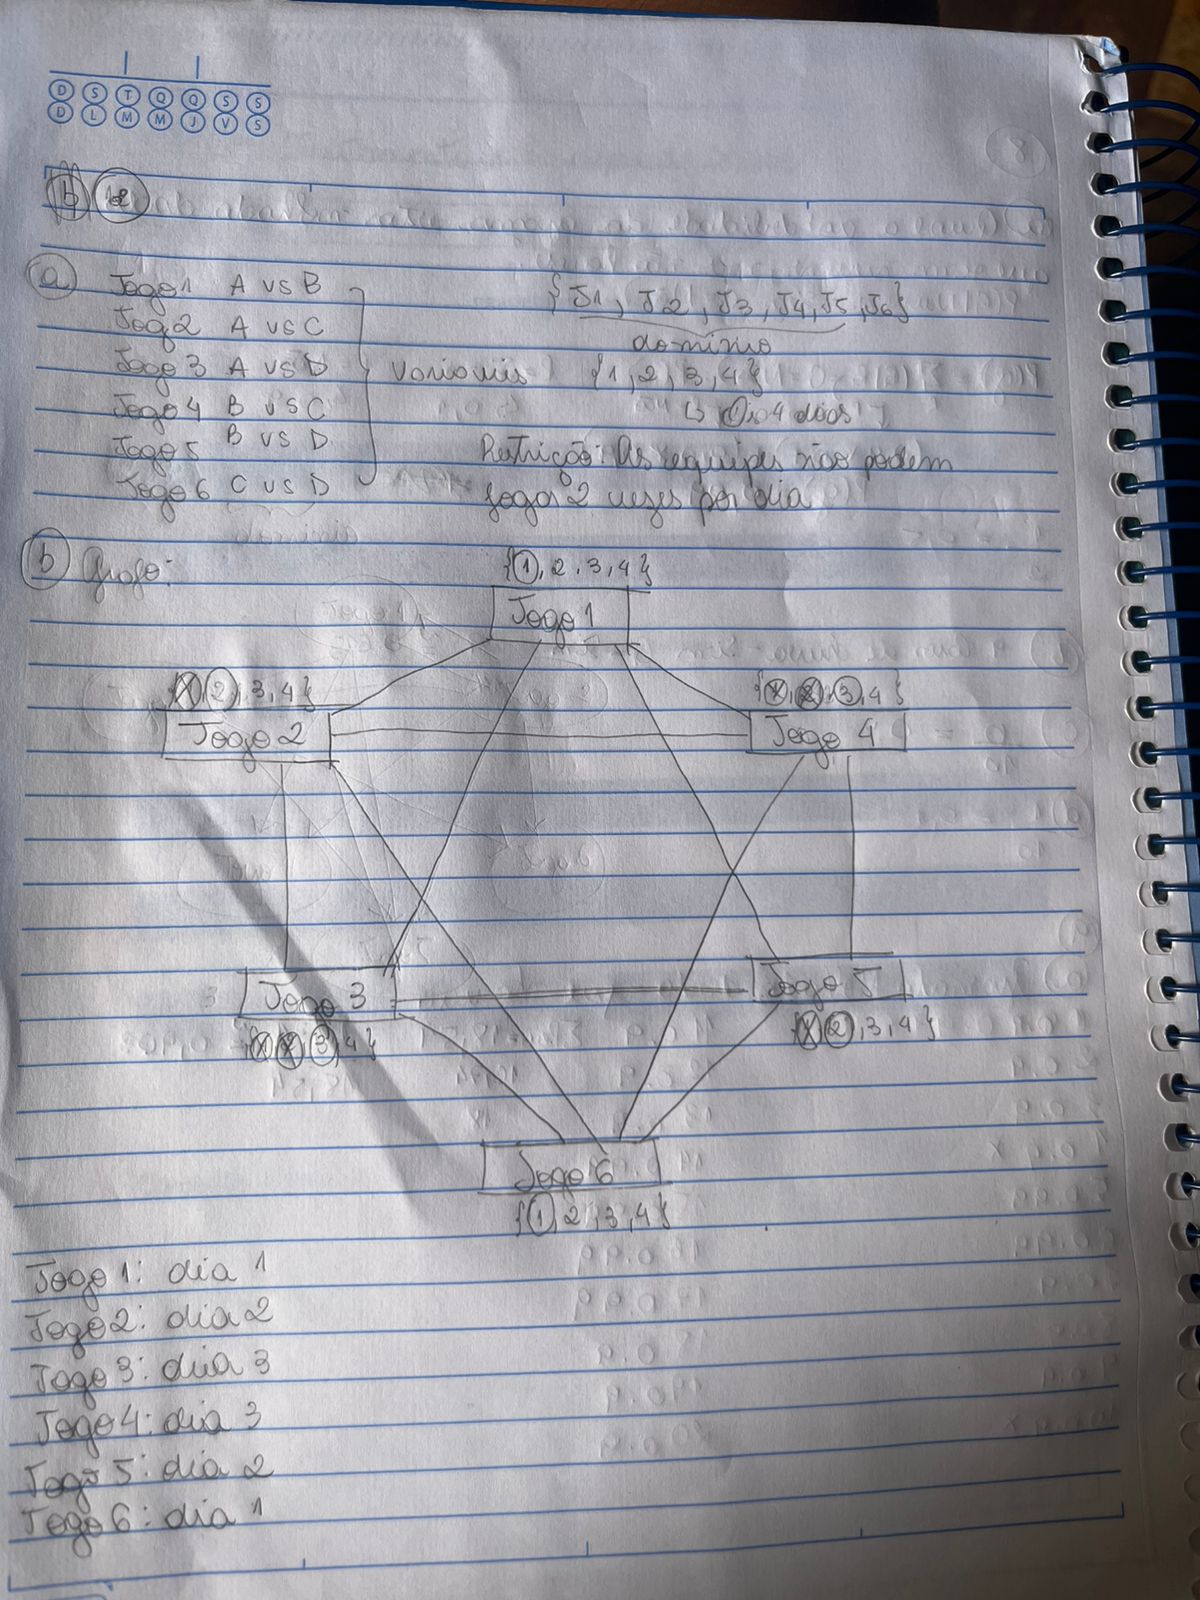 D S T Q Q S S
D L M M J V S
a) Jogo 1 A vs B
Jogo 2 A vs C
Jogo 3 A vs D
Jogo 4 B vs C
Jogo 5 B vs D
Jogo 6 C vs D
variaveis
{J1, J2, J3, J4, J5, J6}
dominio
{1, 2, 3, 4}
4 dias
Restrição: As equipes não podem
jogar 2 vezes por dia
b) Grafo:
{1, 2, 3, 4}
Jogo 1
{1, 2, 3, 4}
Jogo 2
{1, 2, 3, 4}
Jogo 4
Jogo 3
{1, 2, 3, 4}
Jogo 5
{1, 2, 3, 4}
Jogo 6
{1, 2, 3, 4}
Jogo 1: dia 1
Jogo 2: dia 2
Jogo 3: dia 3
Jogo 4: dia 3
Jogo 5: dia 2
Jogo 6: dia 1